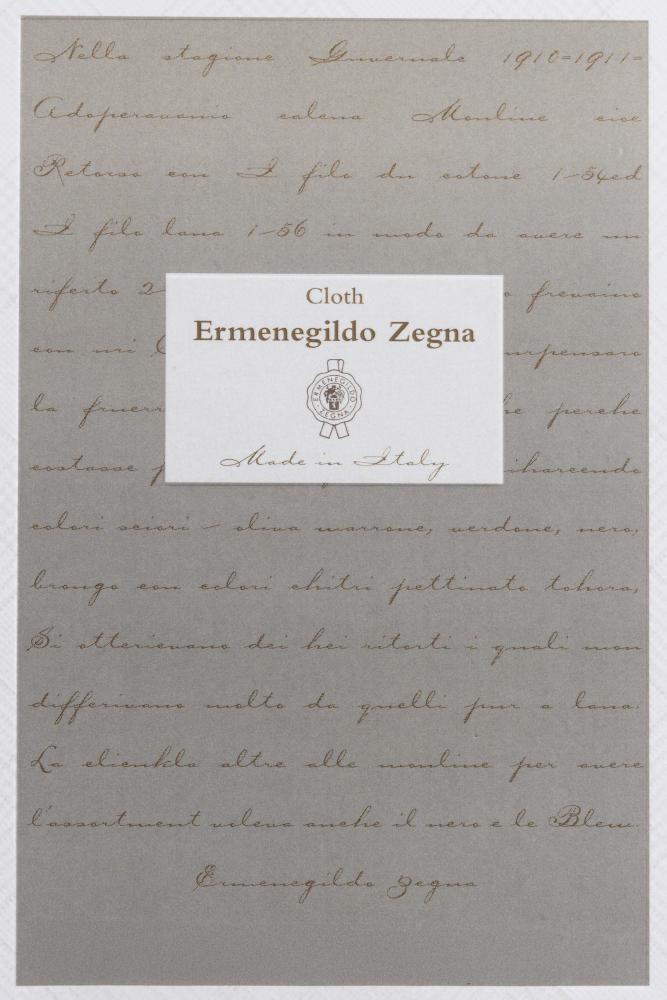 Nella stagione Invernale 1910=1911=
Adoperavamo catena Mouline cioe
Retorso con I filo dn cotone 1-54ed
I filo lana 1-56 in modo da avere un
riferto 2
frevaino
con nri
la
he perche
costasse
colori sciori - oliva marrone, verdone, nero,
brongo con colori chitri pettinato tohora,
Si otterievano dei hei ritorti i quali mon
differivano molto da quelli pur a lana.
La altre alle mouline per avere
l'assortment voleva anche il nero e le Bleu.
Ermenegildo Zegna
Cloth
Ermenegildo Zegna
ERMENEGILDO
ZEGNA
Made in Italy